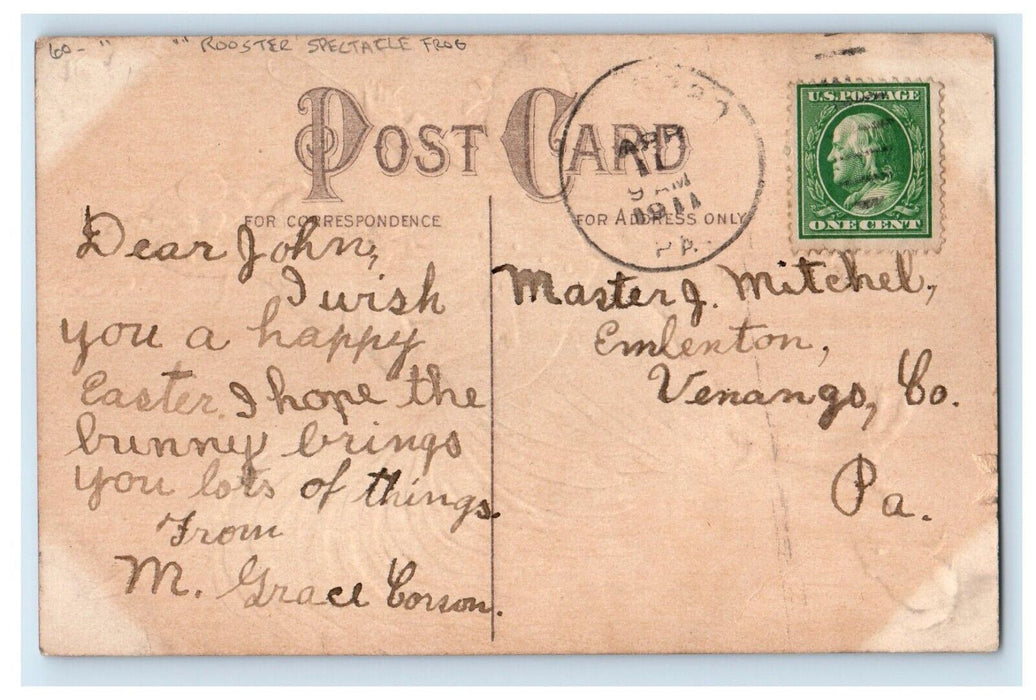 60- " " ROOSTER SPECTACLE FROG
POST CARD
FOR CORRESPONDENCE
FOR ADDRESS ONLY
APR
11
9 AM
1911
PA.
U.S. POSTAGE
ONE CENT
Dear John,
I wish
you a happy
Easter. I hope the
bunney brings
you lots of things.
From
M. Grace Corson.
Master J. Mitchel,
Emlenton,
Venango, Co.
Pa.